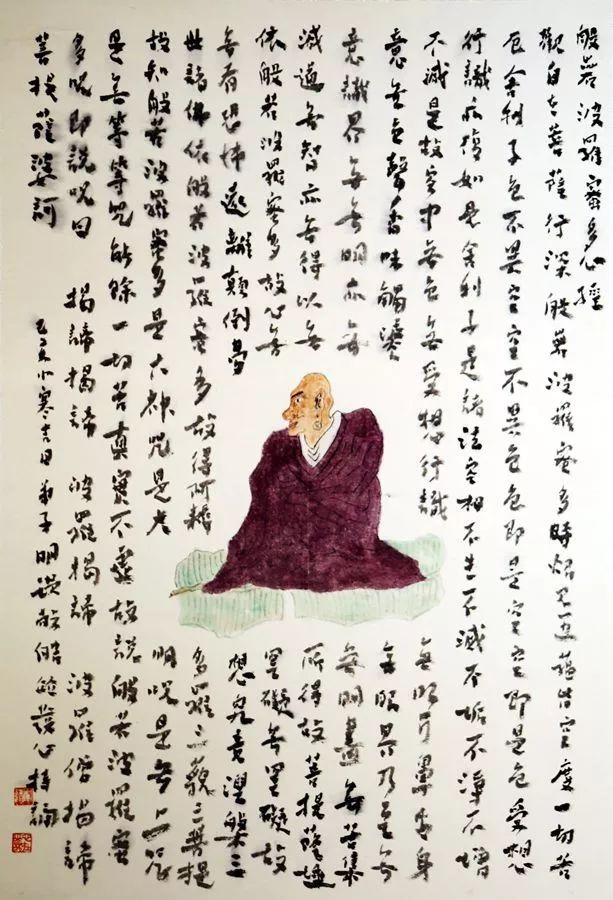 般若波羅蜜多心經
觀自在菩薩行深般若波羅蜜多時照見五蘊皆空度一切苦
厄舍利子色不異空空不異色色即是空空即是色受想
行識亦復如是舍利子是諸法空相不生不滅不垢不淨不增
不減是故空中無色無受想行識 無眼耳鼻舌身
意無色聲香味觸法 無眼界乃至無
意識界無無明亦無 無明盡無苦集
滅道無智亦無得以無 所得故菩提薩埵
依般若波羅蜜多故心無 罣礙無罣礙故
無有恐怖遠離顛倒夢 想究竟涅槃三
世諸佛依般若波羅蜜多故得阿耨 多羅三藐三菩提
故知般若波羅蜜多是大神咒是大 明咒是無上咒
是無等等咒能除一切苦真實不虛故說般若波羅蜜
多咒即說咒曰 揭諦揭諦 波羅揭諦 波羅僧揭諦
菩提薩婆訶 小寒吉日弟子明 發心持誦